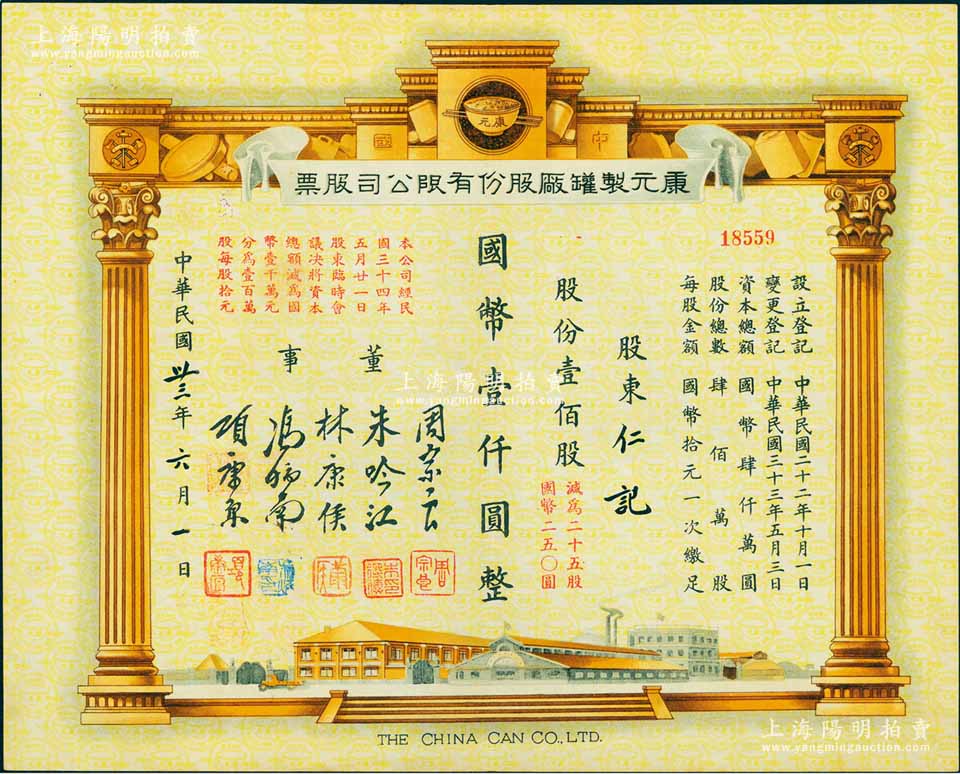 上海陽明拍賣
www.yangmingauction.com
康元
康元製罐廠股份有限公司股票
18559
設立登記 中華民國二十二年十月一日
變更登記 中華民國三十三年五月三日
資本總額 國幣肆仟萬圓
股份總數 肆佰萬股
每股金額 國幣拾元一次繳足
股東仁記
股份壹佰股
減為二十五股
國幣二五〇圓
國幣壹仟圓整
董事
周宗良
朱吟江
林康侯
馮炳南
項康原
本公司經民
國三十四年
五月廿一日
股東臨時會
議決將資本
總額減為國
幣壹千萬元
分為壹百萬
股每股拾元
中華民國卅三年六月一日
上海陽明拍賣
www.yangmingauction.com
THE CHINA CAN CO., LTD.
上海陽明拍賣
www.yangmingauction.com